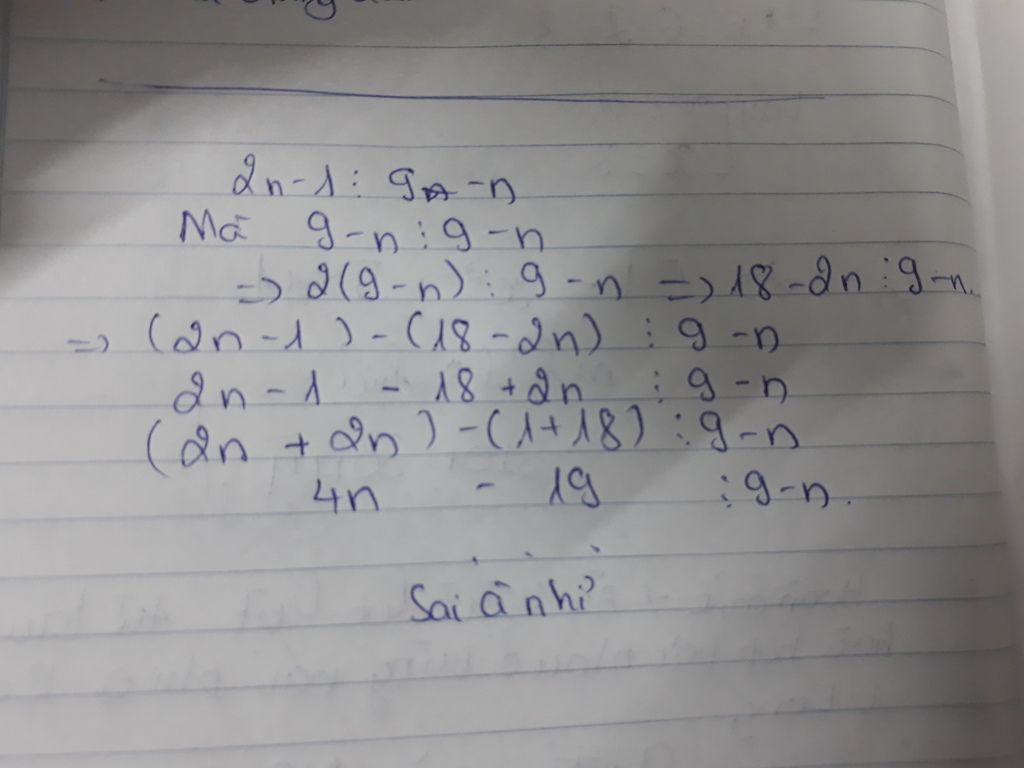 2n - 1 ⋮ 9 - n
Mà 9 - n ⋮ 9 - n
=> 2(9 - n) ⋮ 9 - n => 18 - 2n ⋮ 9 - n.
=> (2n - 1) - (18 - 2n) ⋮ 9 - n
2n - 1 - 18 + 2n ⋮ 9 - n
(2n + 2n) - (1 + 18) ⋮ 9 - n
4n - 19 ⋮ 9 - n.
. . .
Sai à nhỉ